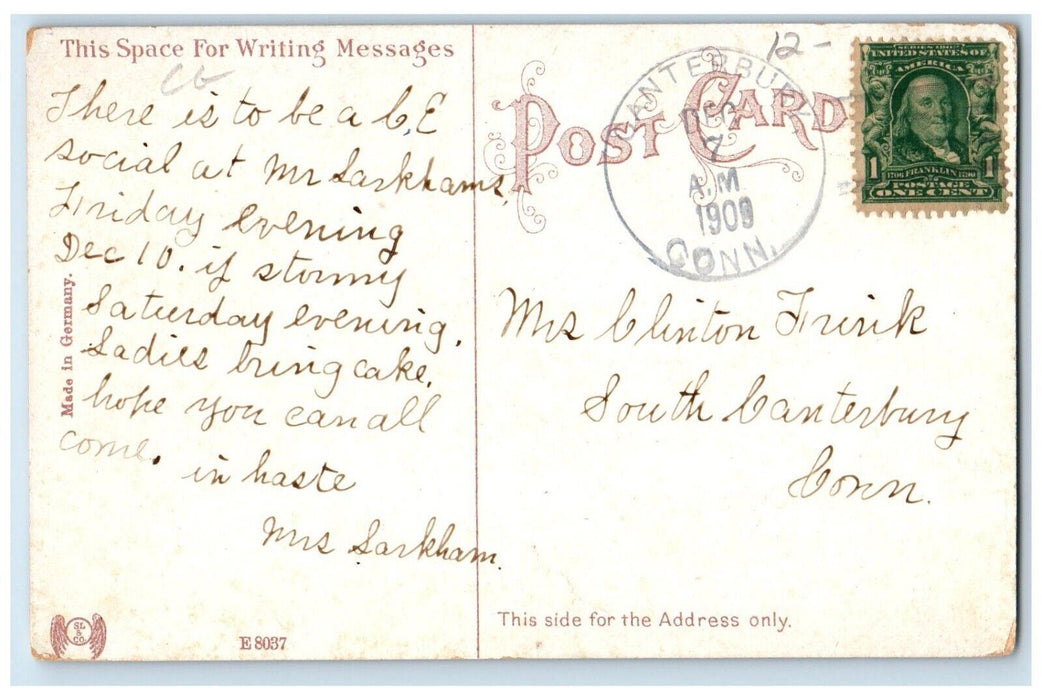 This Space For Writing Messages
CE
There is to be a C,E
social at Mr Larkhams,
Friday evening
Dec 10. if stormy
Saturday evening.
Ladies bring cake.
hope you can all
come.
in haste
Mrs Larkham.
Made in Germany.
SL
&
CO.
E 8037
POST CARD
12-
CANTERBURY
DEC
7
A.M
1909
CONN.
SERIES 1902
UNITED STATES OF
AMERICA
1 1
1706 FRANKLIN 1790
POSTAGE
ONE CENT
Mrs Clinton Frink
South Canterbury
Conn.
This side for the Address only.